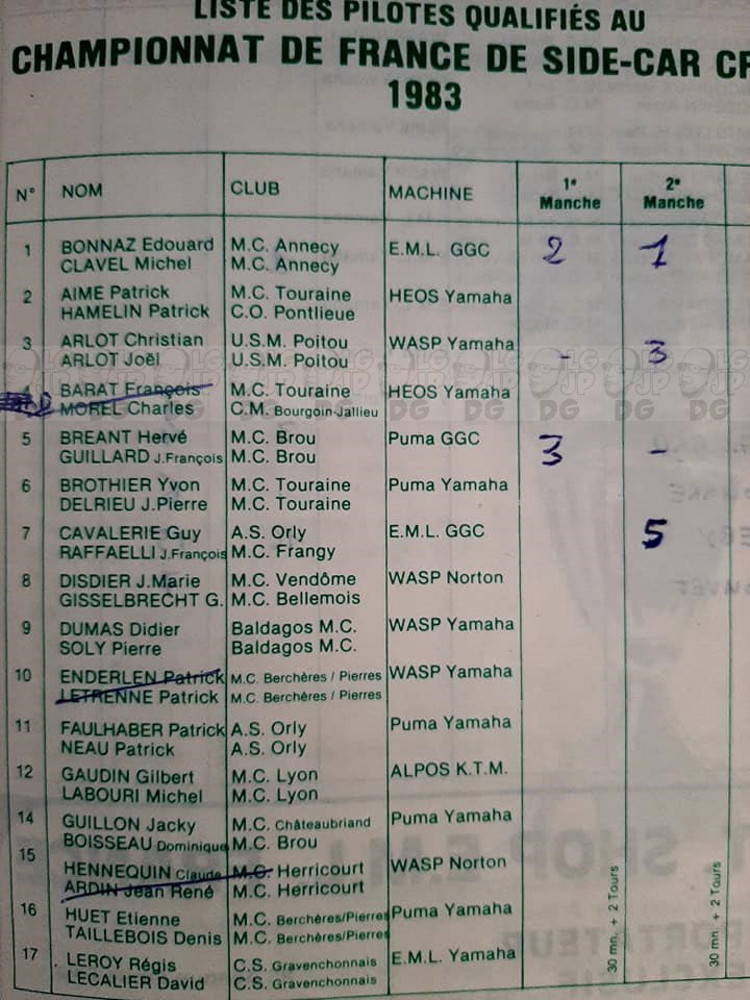 LISTE DES PILOTES QUALIFIÉS AU
CHAMPIONNAT DE FRANCE DE SIDE-CAR
1983
N° NOM CLUB MACHINE 1e Manche 2e Manche
1 BONNAZ Edouard M.C. Annecy E.M.L. GGC 2 1
CLAVEL Michel M.C. Annecy
2 AIME Patrick M.C. Touraine HEOS Yamaha
HAMELIN Patrick C.O. Pontlieue
3 ARLOT Christian U.S.M. Poitou WASP Yamaha - 3
ARLOT Joël U.S.M. Poitou
4 BARAT François M.C. Touraine HEOS Yamaha
MOREL Charles C.M. Bourgoin-Jallieu
5 BREANT Hervé M.C. Brou Puma GGC 3 -
GUILLARD J.François M.C. Brou
6 BROTHIER Yvon M.C. Touraine Puma Yamaha
DELRIEU J.Pierre M.C. Touraine
7 CAVALERIE Guy A.S. Orly E.M.L. GGC 5
RAFFAELLI J.François M.C. Frangy
8 DISDIER J.Marie M.C. Vendôme WASP Norton
GISSELBRECHT G. M.C. Bellemois
9 DUMAS Didier Baldagos M.C. WASP Yamaha
SOLY Pierre Baldagos M.C.
10 ENDERLEN Patrick M.C. Berchères / Pierres WASP Yamaha
LETRENNE Patrick M.C. Berchères / Pierres
11 FAULHABER Patrick A.S. Orly Puma Yamaha
NEAU Patrick A.S. Orly
12 GAUDIN Gilbert M.C. Lyon ALPOS K.T.M.
LABOURI Michel M.C. Lyon
14 GUILLON Jacky M.C. Châteaubriand Puma Yamaha
BOISSEAU Dominique M.C. Brou
15 HENNEQUIN Claude M.C. Herricourt WASP Norton
ARDIN Jean René M.C. Herricourt
16 HUET Etienne M.C. Berchères/Pierres Puma Yamaha
TAILLEBOIS Denis M.C. Berchères/Pierres
17 LEROY Régis C.S. Gravenchonnais E.M.L. Yamaha
LECALIER David C.S. Gravenchonnais
30 mn. + 2 Tours
30 mn. + 2 Tours
LG JP DG